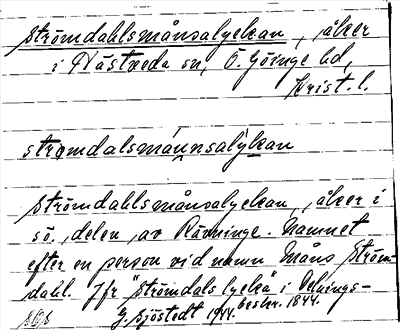 Strömdahlsmånsalyckan, åker
i Hästveda sn, Ö. Göinge hd,
Krist. l.
strömdalsmånnsalykan
Strömdahlsmånsalyckan, åker i
sö. delen av Rävninge. Namnet
efter en person vid namn Måns Ström-
dahl. Jfr "Strömdals lycka" i Delnings-
beskr. 1844.
G. Sjöstedt 1944.